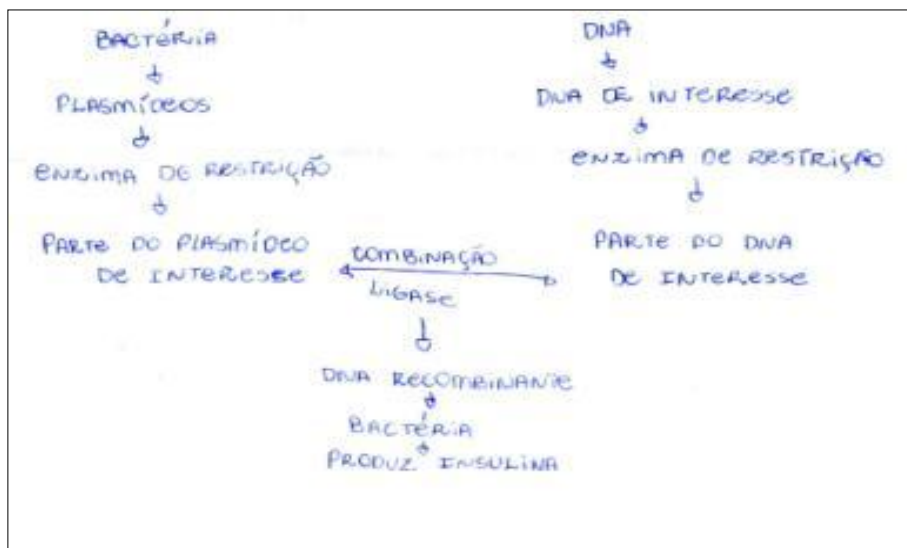 BACTÉRIA
PLASMÍDEOS
ENZIMA DE RESTRIÇÃO
PARTE DO PLASMÍDEO
DE INTERESSE
DNA
DNA DE INTERESSE
ENZIMA DE RESTRIÇÃO
PARTE DO DNA
DE INTERESSE
COMBINAÇÃO
LIGASE
DNA RECOMBINANTE
BACTÉRIA
PRODUZ INSULINA